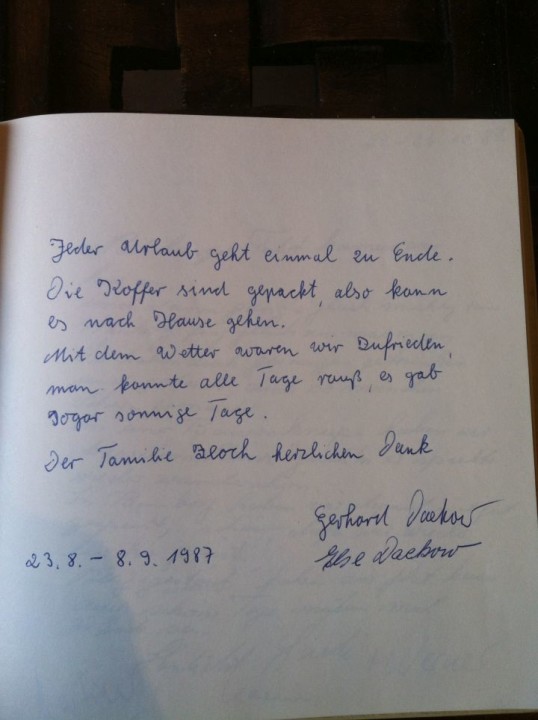 Jeder Urlaub geht einmal zu Ende.
Die Koffer sind gepackt, also kann
es nach Hause gehen.
Mit dem Wetter waren wir zufrieden,
man konnte alle Tage rauß, es gab
sogar sonnige Tage.
Der Familie Bloch herzlichen Dank
Gerhard Dackow
23.8. – 8.9. 1987
Else Dackow